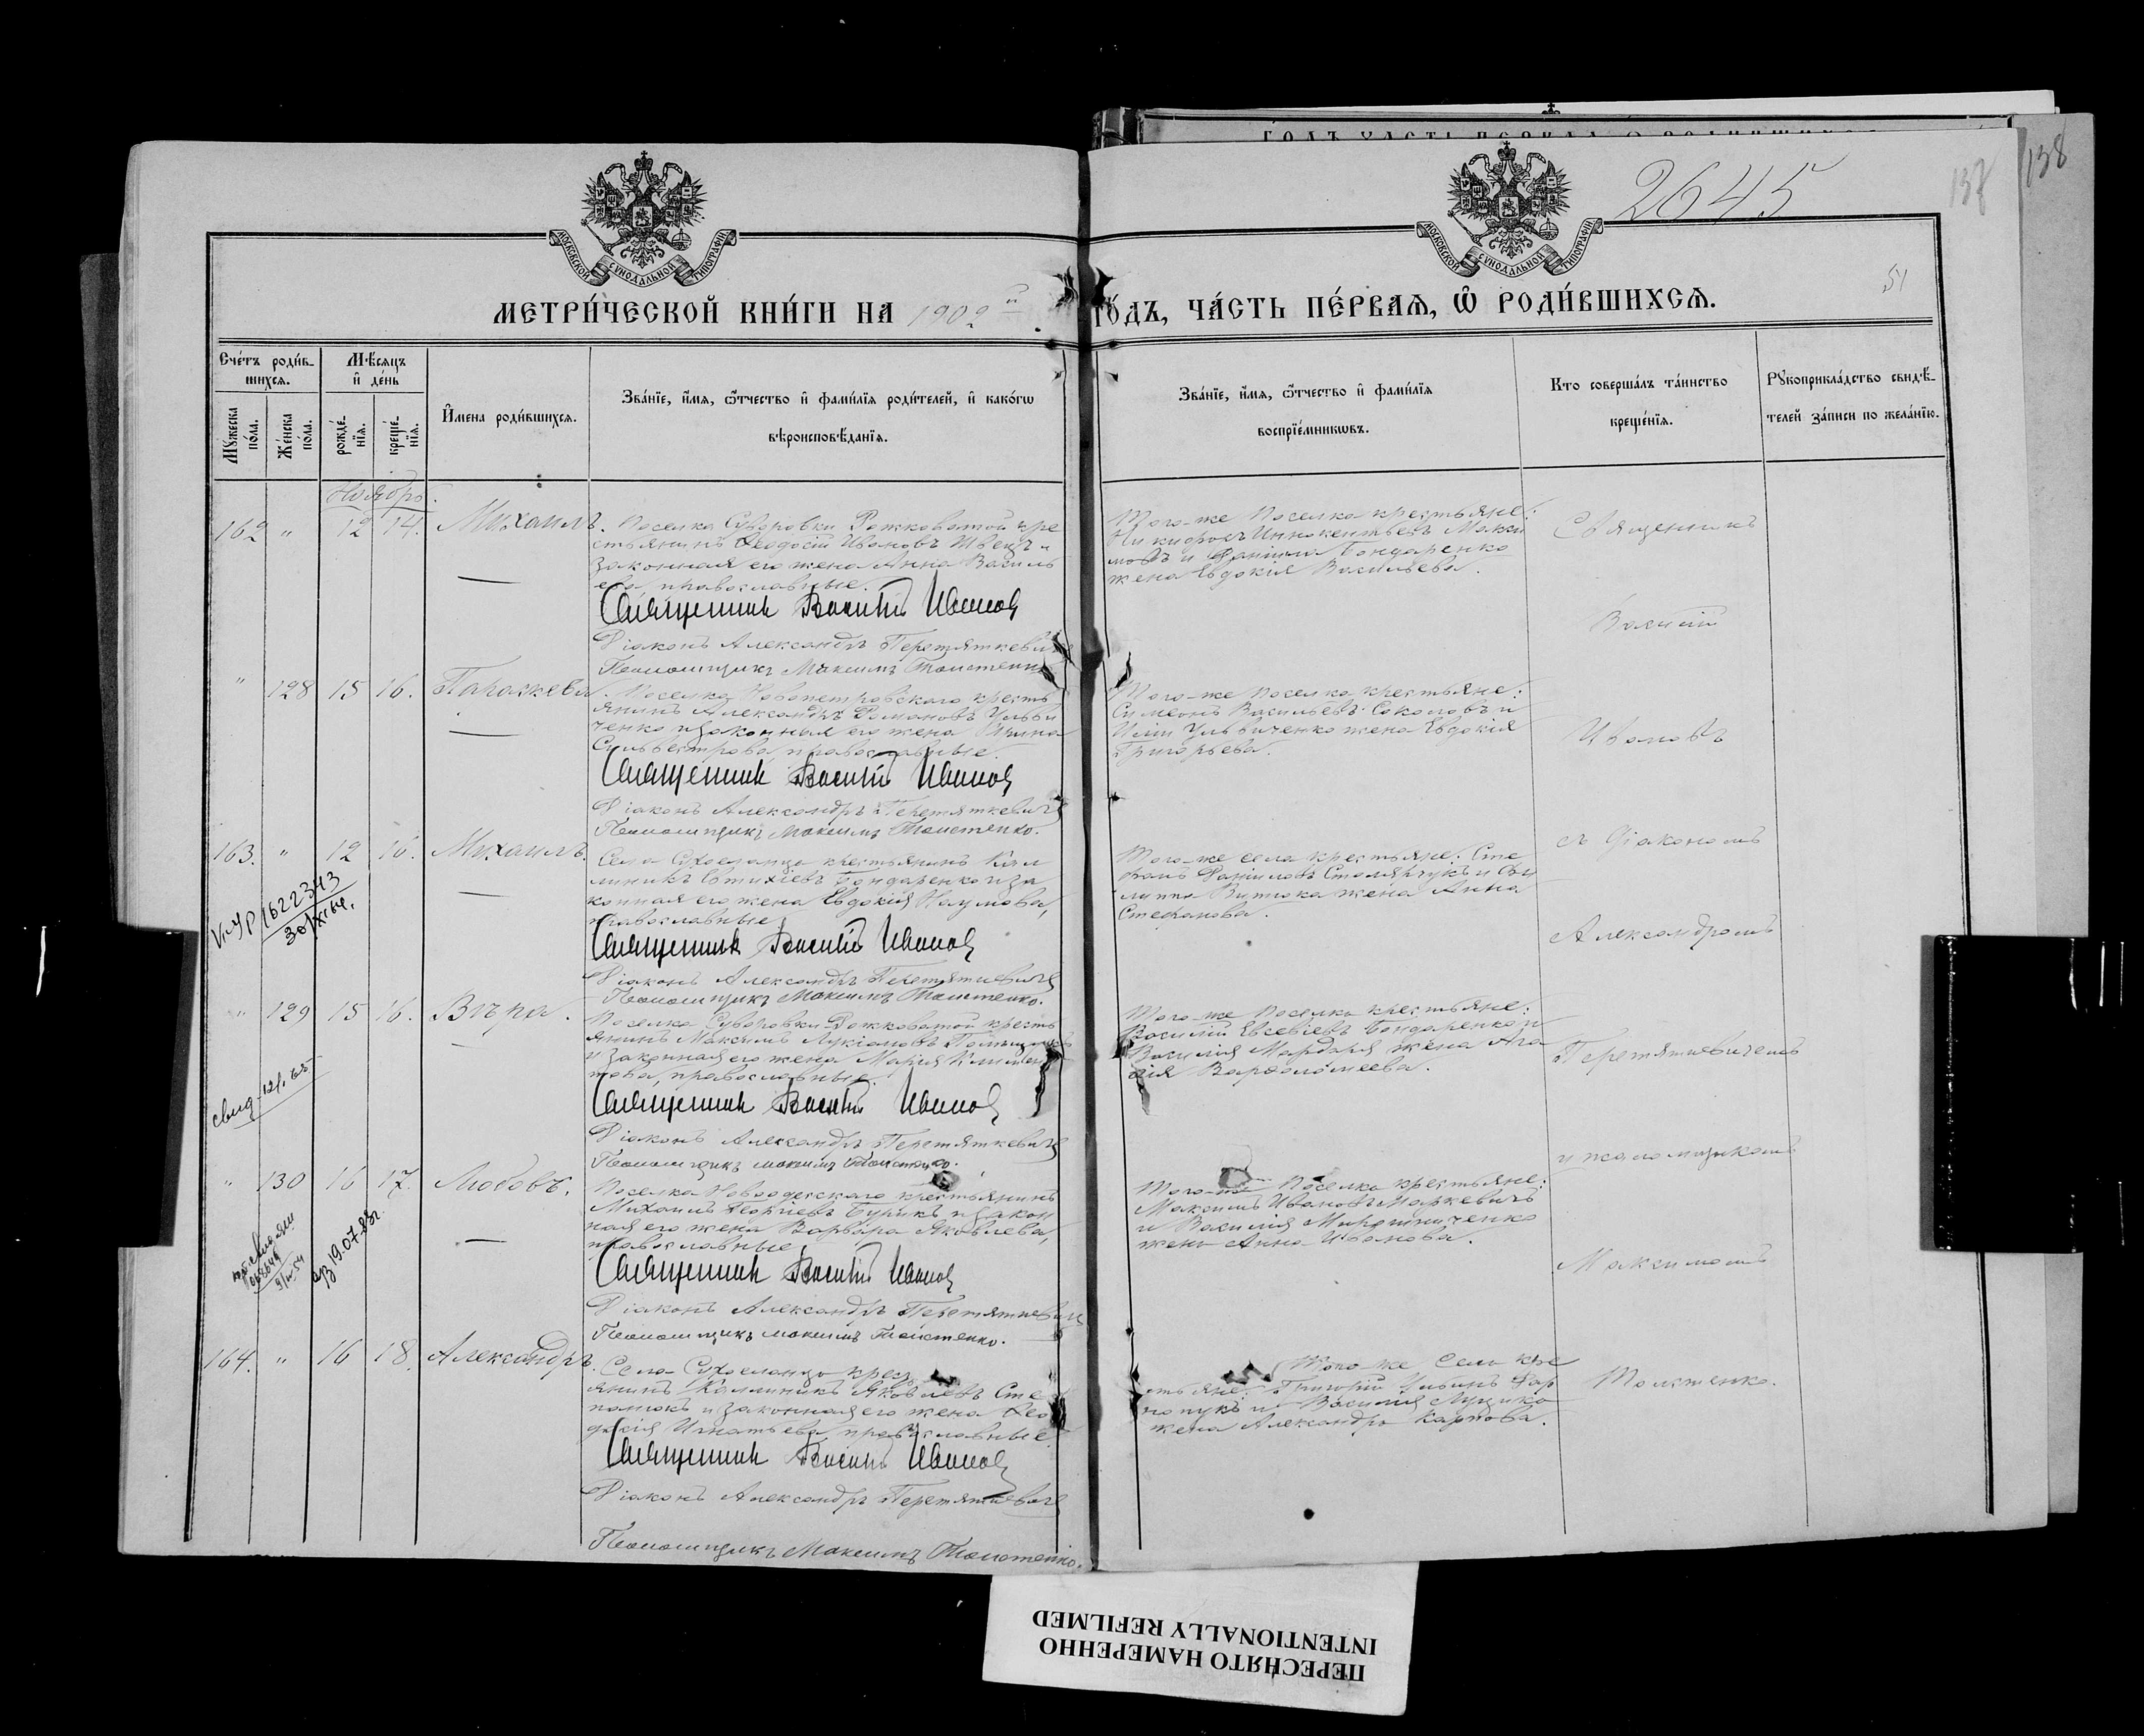 2645
137
138
51
МОСКОВСКОЙ СУНОДАЛЬНОЙ ТИПОГРАФИИ
МОСКОВСКОЙ СУНОДАЛЬНОЙ ТИПОГРАФИИ
МЕТРИ́ЧЕСКОЙ КНИ́ГИ НА 1902 й
ГО́ДЪ, ЧА́СТЬ ПЕ́РВАЯ, Ѿ РОДИ́ВШИХСЯ.
Сче́тъ роди́в-
шихся.
Мѣ́сяцъ
и҆ де́нь
Мꙋ́жеска по́ла.
Же́нска по́ла.
рожде́-нїя.
креще́-нїя.
И҆мена роди́вшихся.
Зва́нїе, и҆́мя, ѻ҆́тчество и҆ фами́лїя роди́телей, и҆ како́гѡ
вѣроисповѣ́данїя.
Зва́нїе, и҆́мя, ѻ҆́тчество и҆ фами́лїя
воспрїе́мникѡвъ.
Кто соверша́лъ та́инство
креще́нїя.
Рꙋкоприкла́дство свидѣ́-
телей за́писи по жела́нїю.
Ноябрь.
162 " 12 14. Михаилъ.
Поселка Суворовки Рожковатой кре
стьянинъ Ѳеодосій Ивановъ Швецъ и
законная его жена Анна Василь
ева, православные.
Священникъ Василій Ивановъ
Діаконъ Александръ Перетяткевичъ
Псаломщикъ Максимъ Толстенко
Того-же поселка крестьяне:
Никифоръ Иннокентьевъ Макси
мовъ и Даніила Бондаренко
жена Евдокія Васильева.
Священникъ
Василій
" 128 15 16. Параскева.
Поселка Новопетровскаго кресть
янинъ Александръ Романовъ Ульви
ченко и законная его жена Ирина
Сильвестрова, православные.
Священникъ Василій Ивановъ
Діаконъ Александръ Перетяткевичъ
Псаломщикъ Максимъ Толстенко.
Того-же поселка крестьяне:
Симеонъ Васильевъ Соколовъ и
Иліи Ульвиченко жена Евдокія
Григорьева.
Ивановъ
163. " 12 16. Михаилъ.
Села Сухоеланца крестьянинъ Кал
линикъ Евтихіевъ Бондаренко и за
конная его жена Евдокія Наумова,
православные
Священникъ Василій Ивановъ
Діаконъ Александръ Перетяткевичъ
Псаломщикъ Максимъ Толстенко.
Того-же села крестьяне: Сте
фанъ Даніиловъ Столярчукъ и Фи
липпа Витюка жена Анна
Стефанова.
съ діакономъ
Александромъ
1622343
" 129 15 16. Вѣра.
Поселка Суворовки-Рожковатой кресть
янинъ Максимъ Лукіановъ
и законная его жена Марія Климен
това, православные.
Священникъ Василій Ивановъ
Діаконъ Александръ Перетяткевичъ
Псаломщикъ Максимъ Толстенко.
Того-же поселка крестьяне:
Василій Евсевіевъ Бондаренко и
Василія Мардаря жена Ага
ѳія Варѳоломеева.
Перетяткевичемъ
и псаломщикомъ
" 130 16 17. Любовь.
Поселка Новоодесскаго крестьянинъ
Михаилъ Георгіевъ Бурикъ и закон
ная его жена Варвара Яковлева,
православные
Священникъ Василій Ивановъ
Діаконъ Александръ Перетяткевичъ
Псаломщикъ Максимъ Толстенко.
Того-же поселка крестьяне:
Максимъ Ивановъ Маркевичъ
и Василія Мирошниченко
жена Анна Иванова.
Максимомъ
19.07.83г.
164. " 16 18. Александръ.
Села Сухоеланца крес
янинъ Каллиникъ Яковлевъ Сте
панюкъ и законная его жена Ѳео
досія Игнатьева, православные
Священникъ Василій Ивановъ
Діаконъ Александръ Перетяткевичъ
Псаломщикъ Максимъ Толстенко.
Того-же села кре
стьяне: Григорій Ильинъ
и Василія Луценко
жена Александра Карпова.
Толстенко.
ПЕРЕСНЯТО НАМЕРЕННО
INTENTIONALLY REFILMED